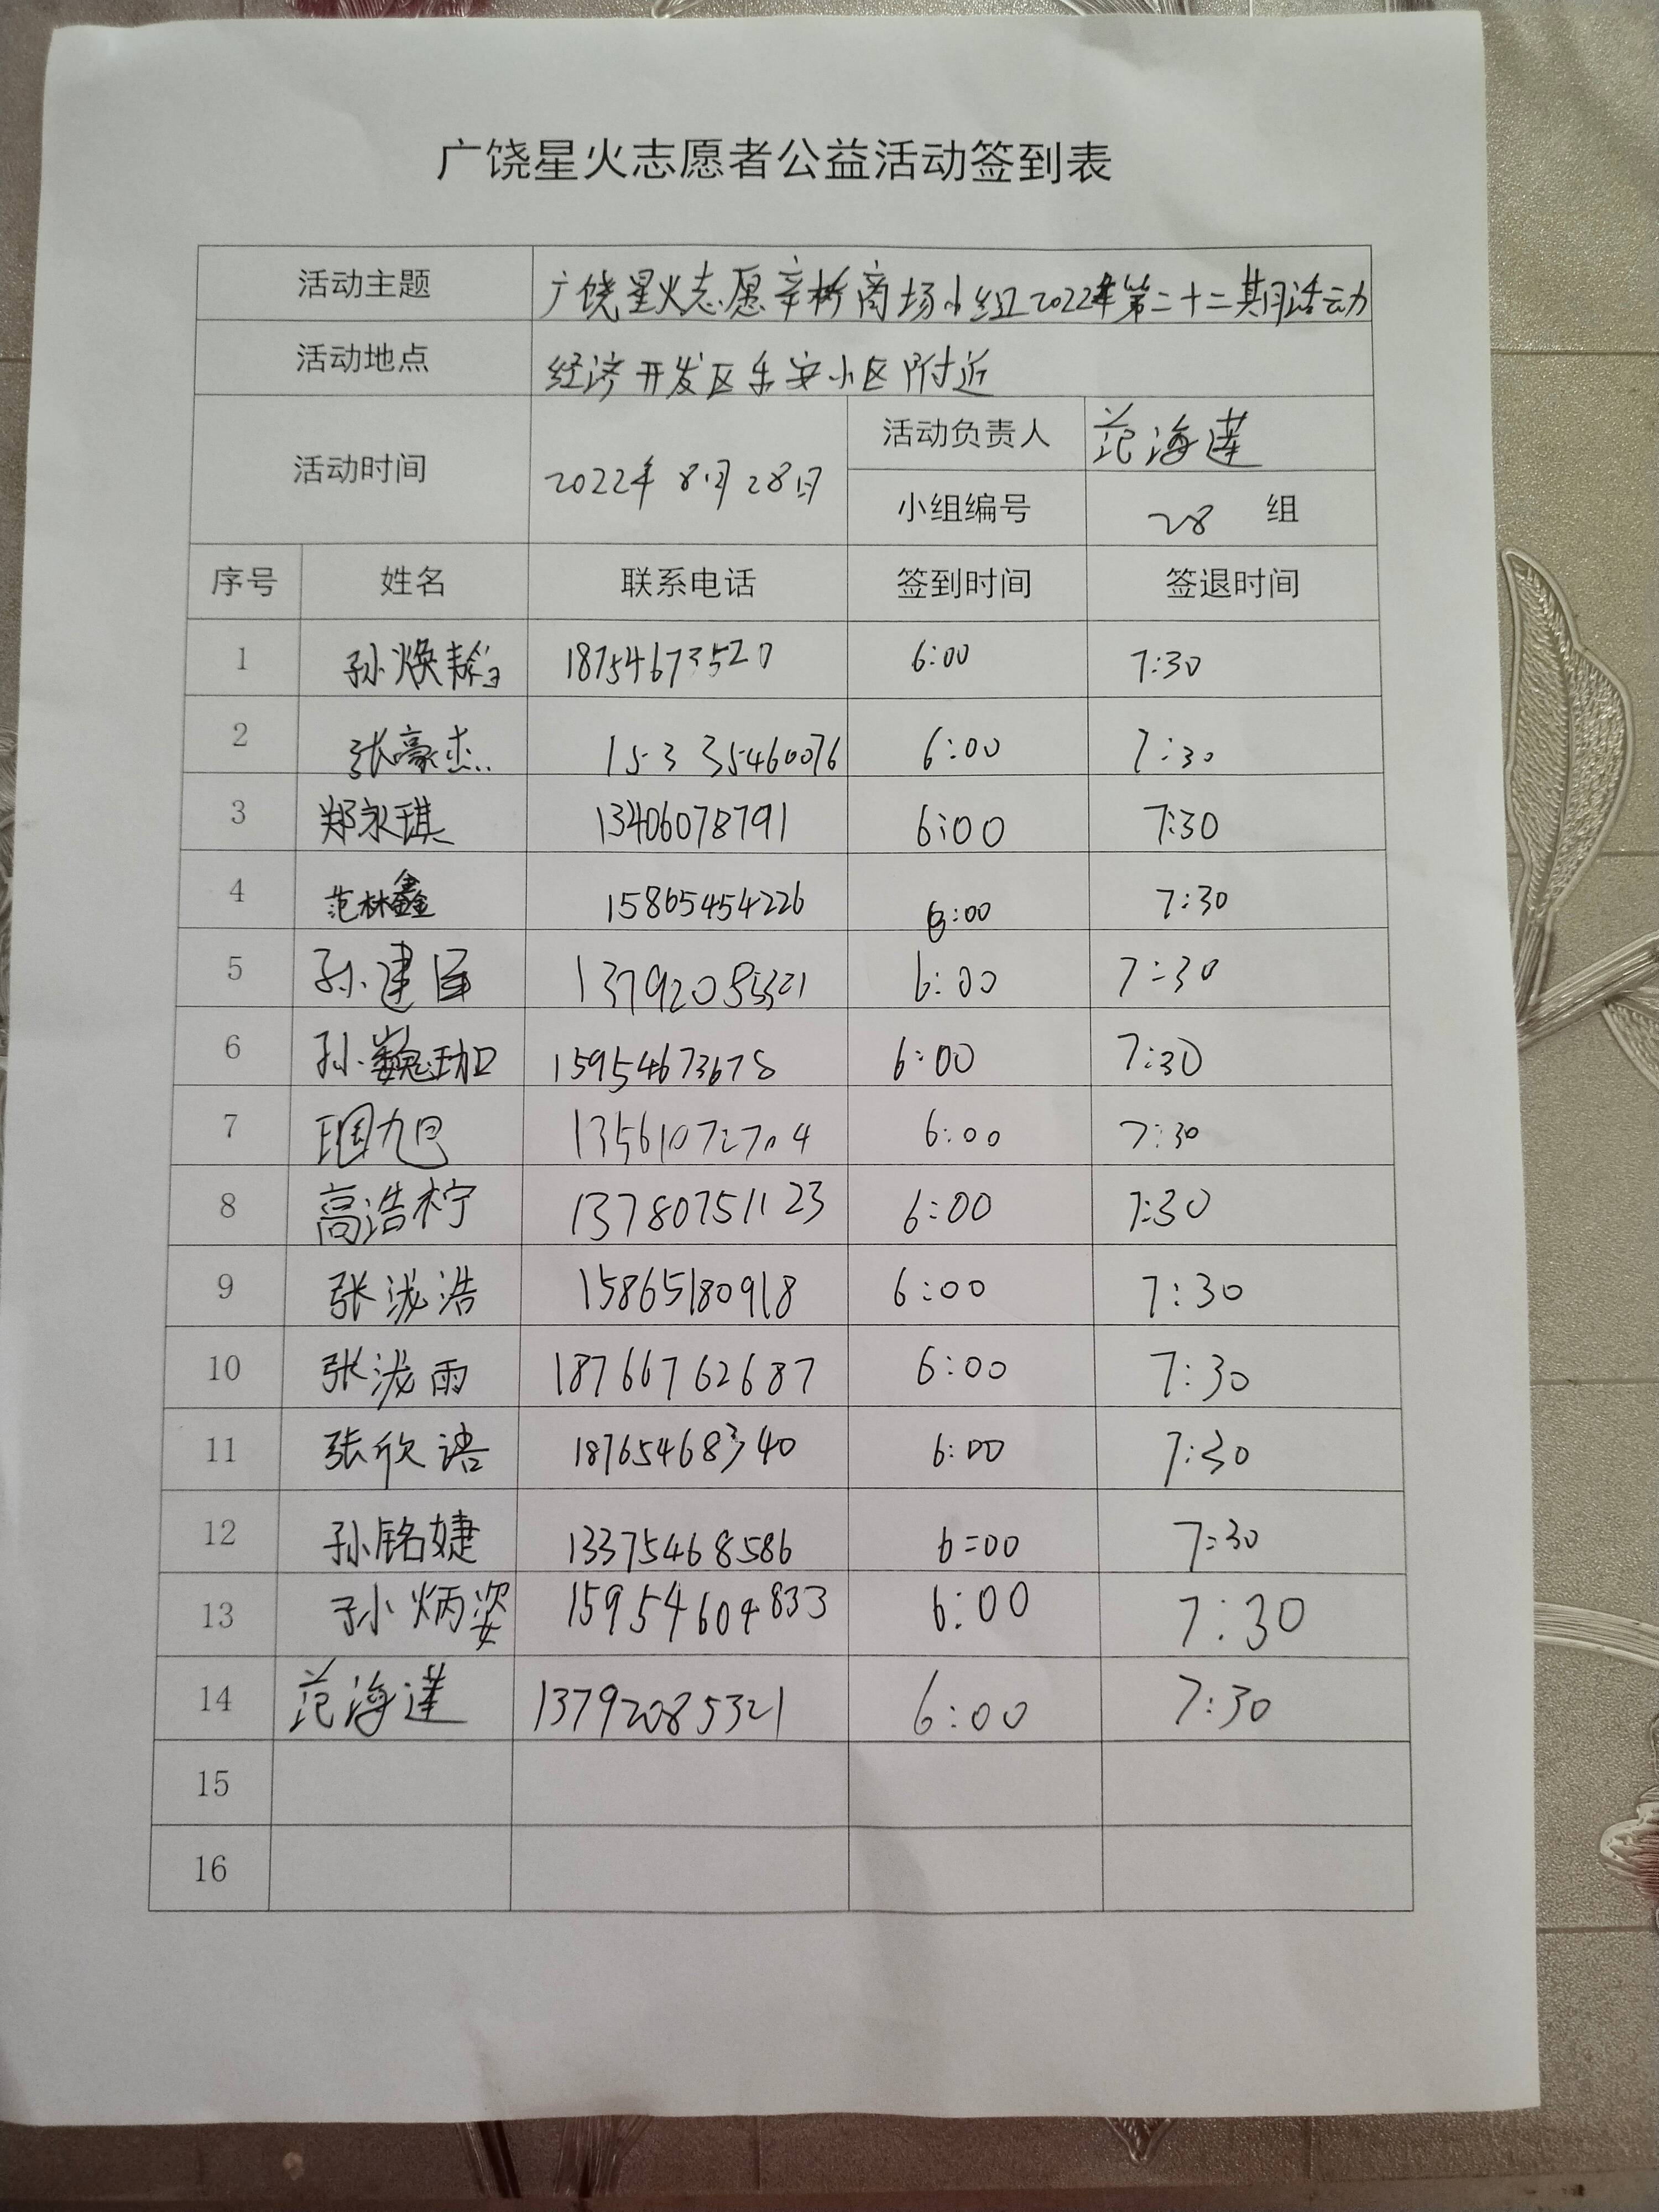 广饶星火志愿者公益活动签到表
活动主题 广饶星火志愿辛桥商场小组2022年第二十二期活动
活动地点 经济开发区乐安小区附近
活动时间 2022年8月28日 活动负责人 范海莲
小组编号 28 组
序号 姓名 联系电话 签到时间 签退时间
1 孙焕龄 18754673520 6:00 7:30
2 张豪杰 15335460076 6:00 7:30
3 郑永琪 13406078791 6:00 7:30
4 范林鑫 15865454226 6:00 7:30
5 孙建 13792085321 6:00 7:30
6 孙巍珈 15954673678 6:00 7:30
7 13561072704 6:00 7:30
8 高浩柠 13780751123 6:00 7:30
9 张泷浩 15865180918 6:00 7:30
10 张泷雨 18766762687 6:00 7:30
11 张欣语 18765468340 6:00 7:30
12 孙铭婕 13375468586 6:00 7:30
13 孙炳姿 15954604833 6:00 7:30
14 范海莲 13792085321 6:00 7:30
15
16